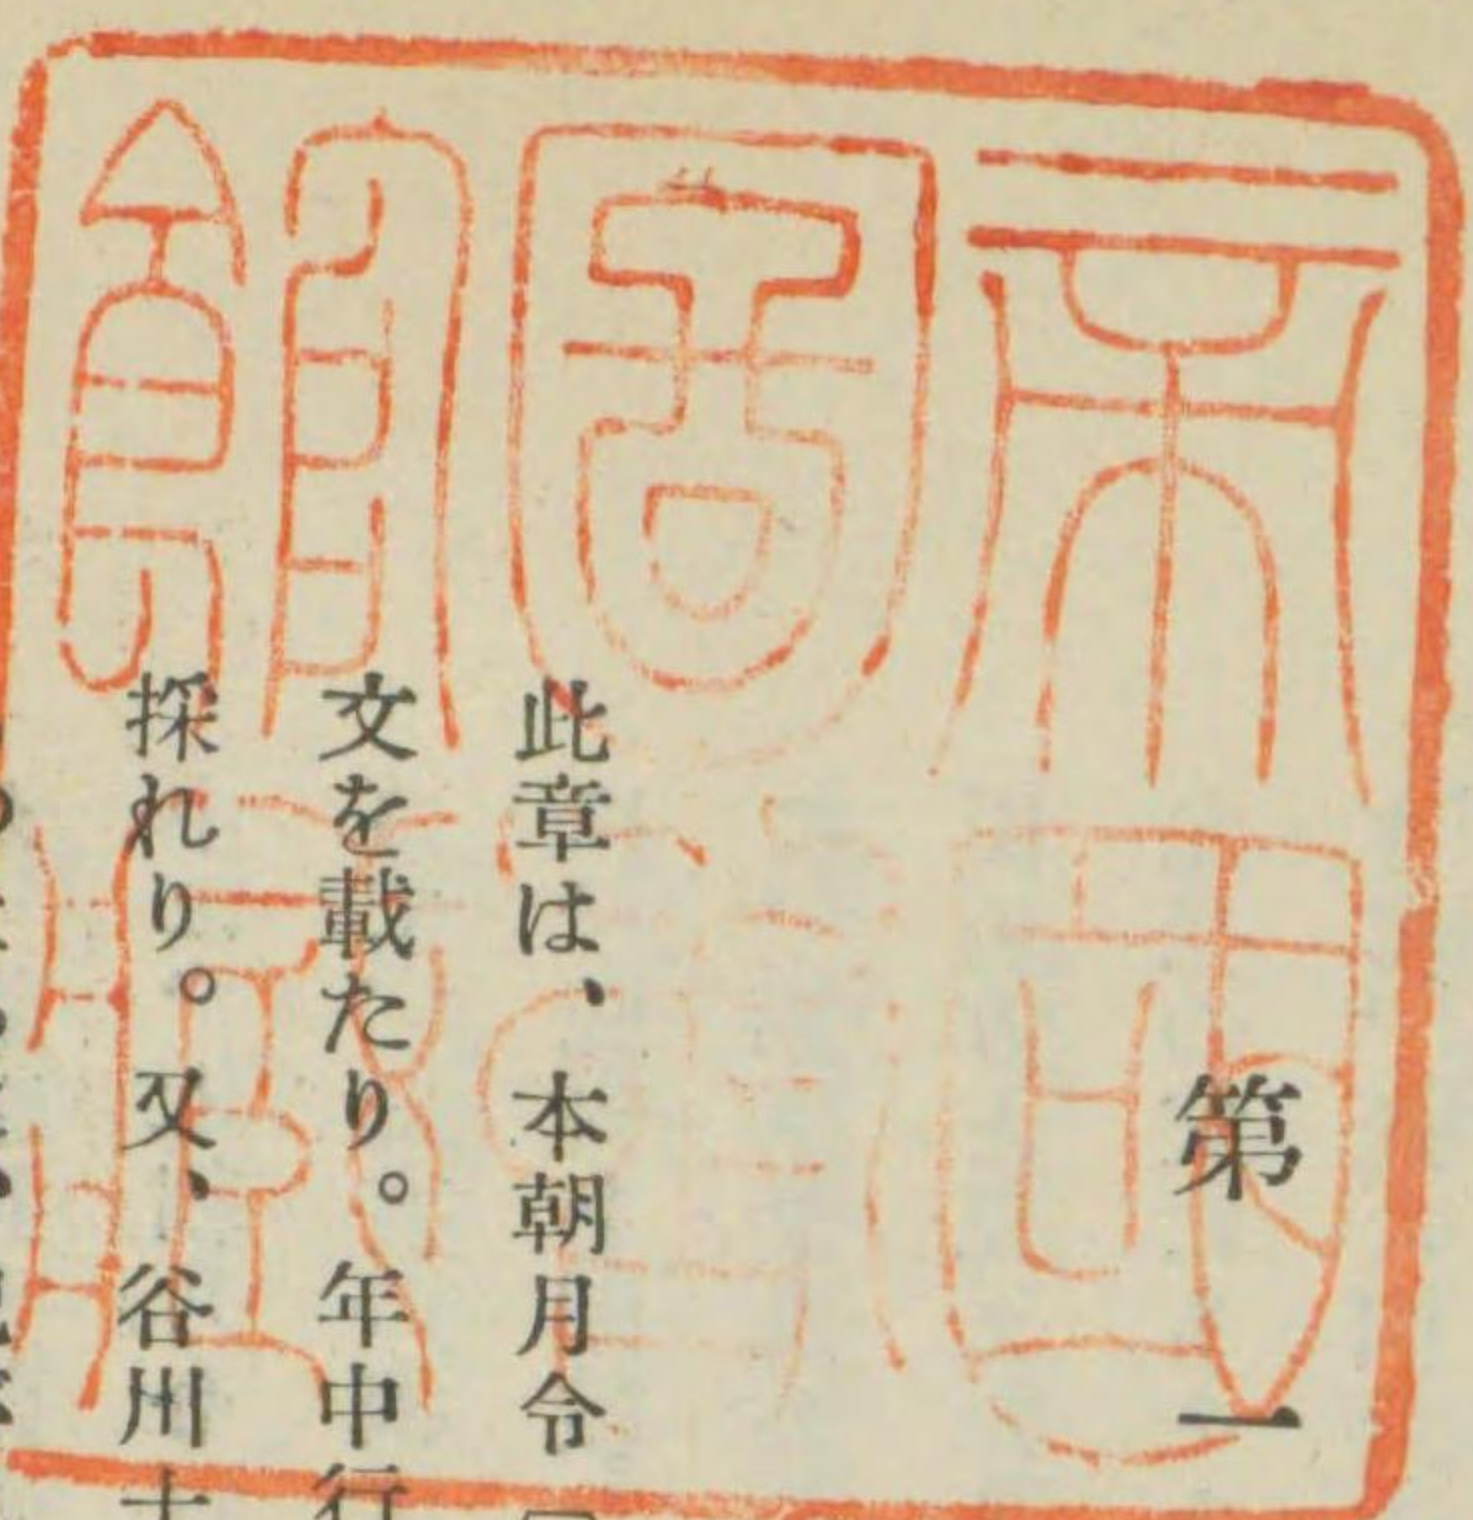 帝國
圖書
館藏
第一
此章は、本朝月令
文を載たり。年中行
採れり。又、谷川士